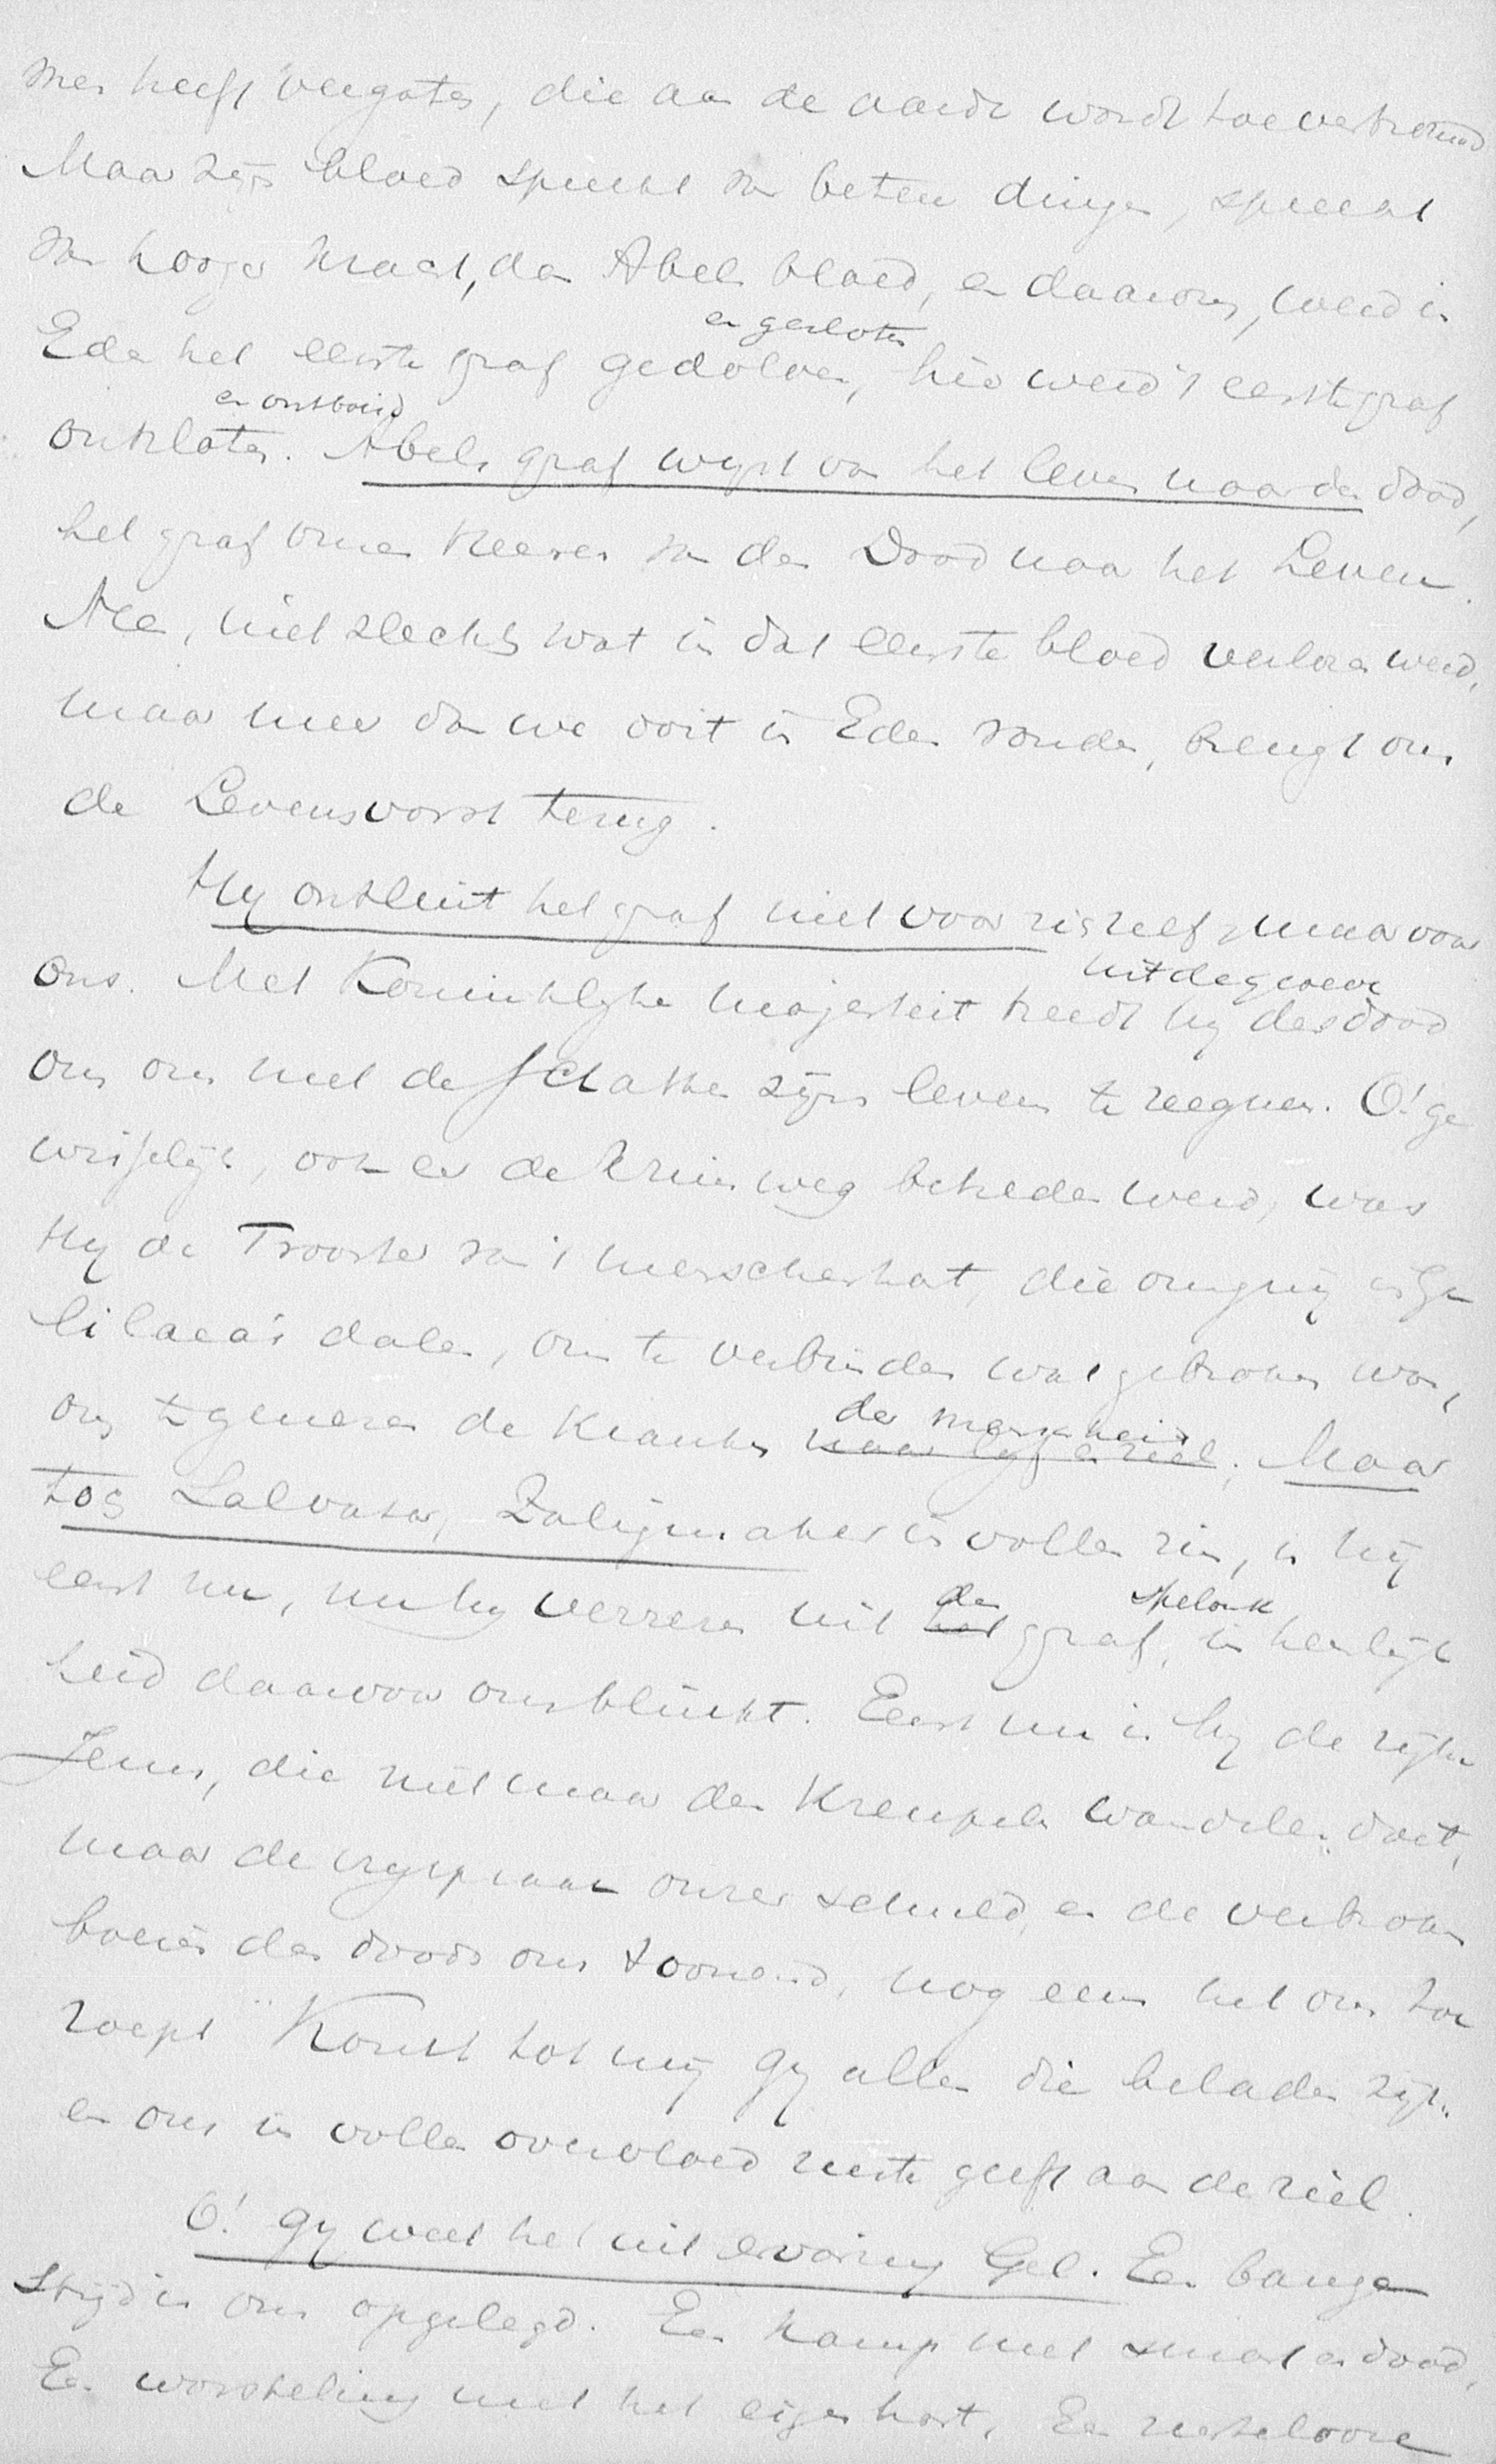 men heeft vergoten, die aan de aarde wordt toevertrouwd
Maar zijn bloed spreekt van betere dingen, spreekt
van hooger kracht, dan Abels bloed, en daarom, werd in
en gesloten
Eden het eerste graf gedolven, hier werd 't eerst graf
en ontboeid
ontsloten. Abels graf wyst van het leven naar den dood,
het graf onzes Heeren van den Dood naar het Leven.
Nee, niet slechts wat in dat eerste bloed verloren werd,
maar meer dan we ooit in Eden vonden, brengt ons
de Levensvorst terug.
Hy ontsluit het graf niet voor zich zelf, maar voor
uit de groeve
ons. Met Koninklyke majesteit treedt hy des doods
om ons met de schatten zijns levens te zegenen. O! ge
wisselijk, ook eer de kruisweg betreden werd, was
Hy de Trooster van 't menschenhart, die omging in Ga
lilaea's dalen, om te verbinden wat gebroken was,
der menschheid
om te genezen de kranken naar lyf en ziel. Maar
tog Salvator, Zaligmaker in vollen zin, is hij
den spelonk
eerst nu, nu hy verrezen uit het graf, in heerlijk
heid daarvoor ons blinkt. Eerst nu is hy de rijke
Jezus, die niet maar den Kreupele wandelen doet,
maar de vryspraak onzer schuld, en de verbroken
boeien des doods ons toonend, nog eens het ons toe
roept "Komt tot mij gy allen die beladen zijt"
en ons in vollen overvloed ruste geeft aan de ziel.
O! gy weet het uit ervaring Gel. Een bange
strijd is ons opgelegd. Een kamp met smart en dood,
Een worsteling met het eigen hart. Een rusteloore